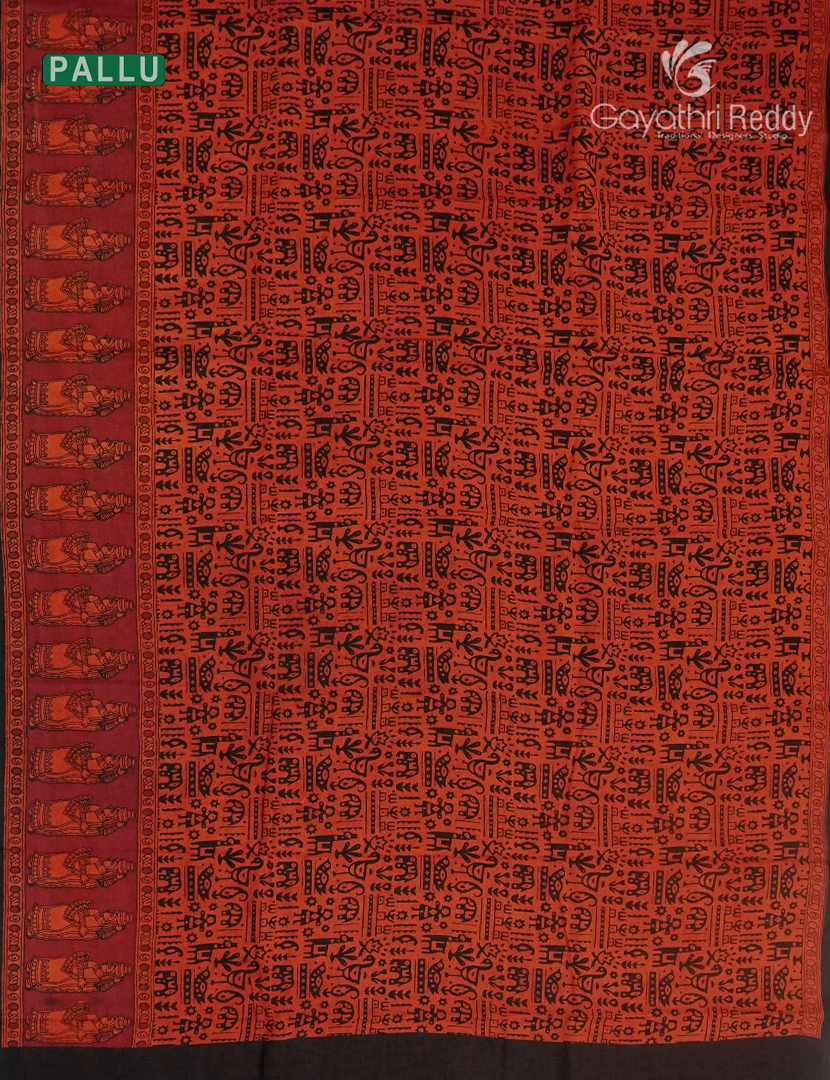 PALLU
Gayathri Reddy
Traditional Designers Studio